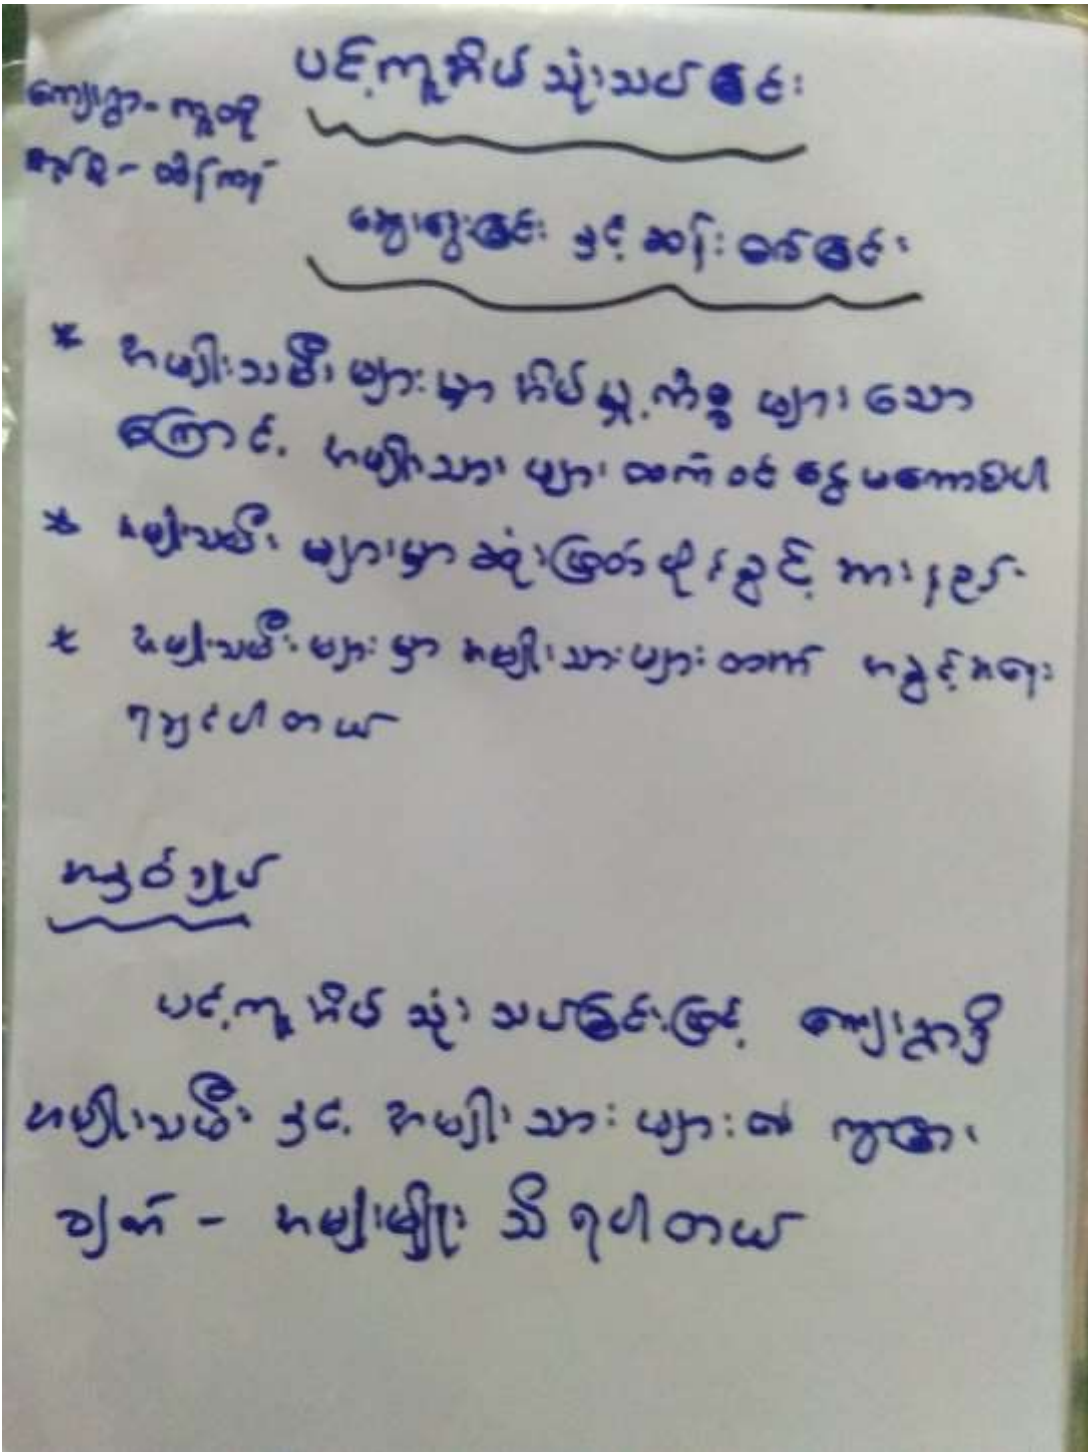 ပင့်ကူအိမ်သုံးသပ်ခြင်း
ကျေးရွာ - ကူတို့
ဆွေးနွေးခြင်း နှင့် ဆန်းစစ်ခြင်း
* အမျိုးသမီး များမှာ အိမ်မှု့ကိစ္စ များသော
ကြောင့် အမျိုးသား များ ထက် ဝင်ငွေ မကောင်းပါ
* အမျိုးသမီး များမှာ ဆုံးဖြတ်ပိုင်ခွင့် အားနည်း
* အမျိုးသမီးများမှာ အမျိုးသားများထက် အခွင့်အရေး
ရသင့်ပါတယ်
အနှစ်ချုပ်
ပင့်ကူအိမ်သုံးသပ်ခြင်းဖြင့် ကျေးရွာရှိ
အမျိုးသမီး နှင့် အမျိုးသားများ၏ ကွာခြား
ချက် - အမျိုးမျိုး သိရပါတယ်